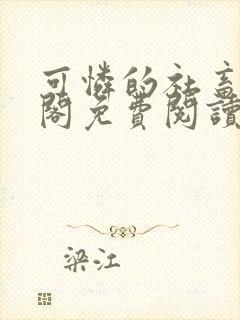 可憐的社畜
閣免費閱讀
梁江